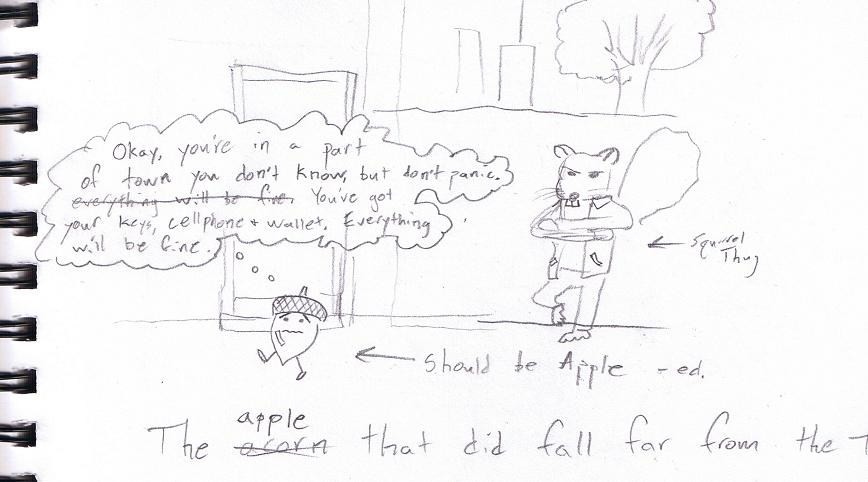 Okay, you're in a part
of town you don't know, but don't panic.
everything will be fine. You've got
your keys, cellphone + wallet. Everything
will be fine.
Squirrel
Thug
Should be Apple - ed.
apple
The acorn that did fall far from the T